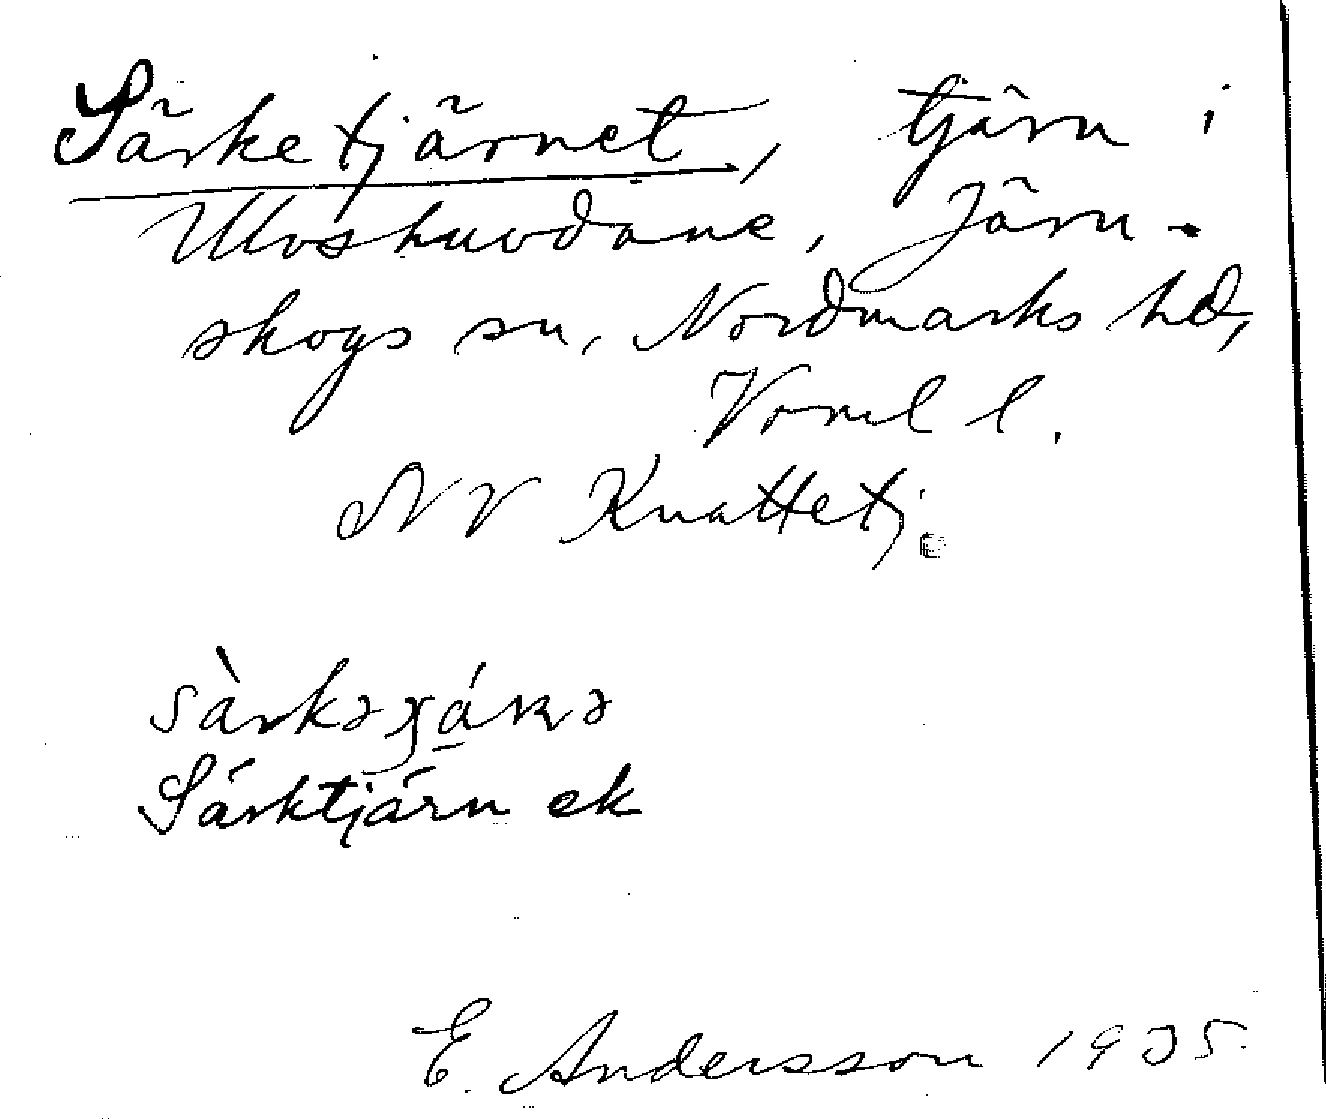 Särketjärnet, tjärn i
Ulvshuvdane, Järn-
skogs sn, Nordmarks hd,
Vrml l.
NV Knattetj.
Särktjärn ek
E. Andersson 1935